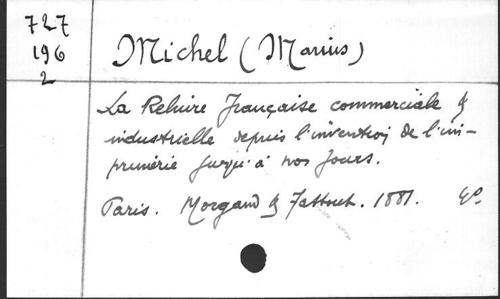 727
196
2
Michel (Marius)
La Reliure Française commerciale &
industrielle depuis l'invention de l'im-
primerie jusqu'à nos jours.
Paris. Morgand & Fattout. 1881. 4o.